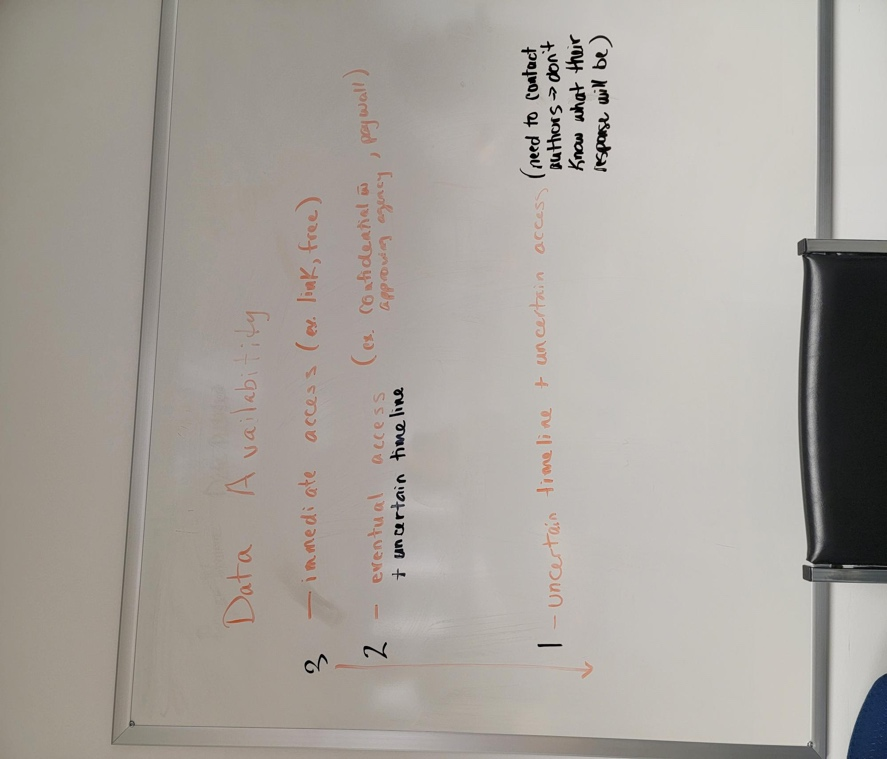 Data Availability
3 - immediate access (ex. link, free)
2 - eventual access (ex. confidential w approving agency, paywall)
+ uncertain timeline
1 - uncertain timeline + uncertain access (need to contact
authors → don't
know what their
response will be)